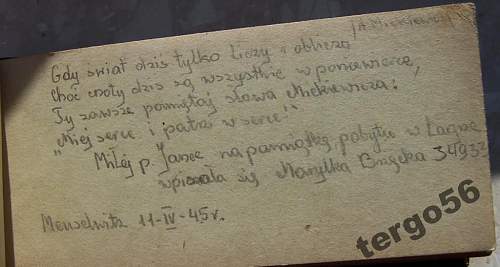 /A. Mickiewicz
Gdy świat dziś tylko liczy i oblicza
Choć cnoty dziś są wszystkie w poniewierce,
Ty zawsze pamiętaj słowa Mickiewicza:
"Miej serce i patrz w serce".
Miłej p. Janec na pamiątkę pobytu w Lagrze
wpisała się Marylka 34933
Meuselwitz 11-IV-45 r.
tergo56